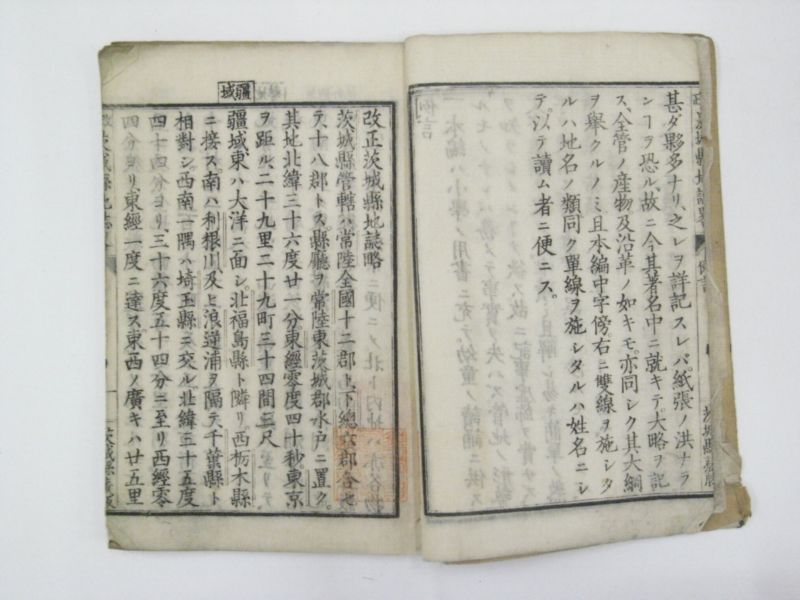 甚ダ夥多ナリ、之レヲ詳記スレバ、紙張ノ洪ナラ
ンヿヲ恐ル、故ニ今其著名中ニ就キテ、大略ヲ記
ス、全管ノ産物及沿革ノ如キモ、亦同シク其大綱
ヲ擧クルノミ、且本編中字傍右ニ雙線ヲ施シタ
ルハ地名ノ類、同ク單線ヲ施シタルハ姓名ニシ
テ、以テ讀ム者ニ便ニス。
疆域
改正茨城縣地誌略
茨城縣管轄ハ常陸全國十二郡ト、下總六郡合セ
テ、十八郡トス、縣廳ヲ常陸東茨城郡水戸ニ置ク、
其地北緯三十六度廿一分、東經零度四十秒、東京
ヲ距ル、二十九里二十九町三十四間三尺
疆域、東ハ大洋ニ面シ、北福島縣ト隣リ、西栃木縣
ニ接ス、南ハ利根川及ヒ浪逆浦ヲ隔テ千葉縣ト
相對シ、西南一隅ハ埼玉縣ニ交ル、北緯三十五度
四十四分ヨリ、三十六度五十四分ニ至リ、西經零
四分ヨリ、東經一度ニ達ス、東西ノ廣キハ廿五里
茨城縣地誌